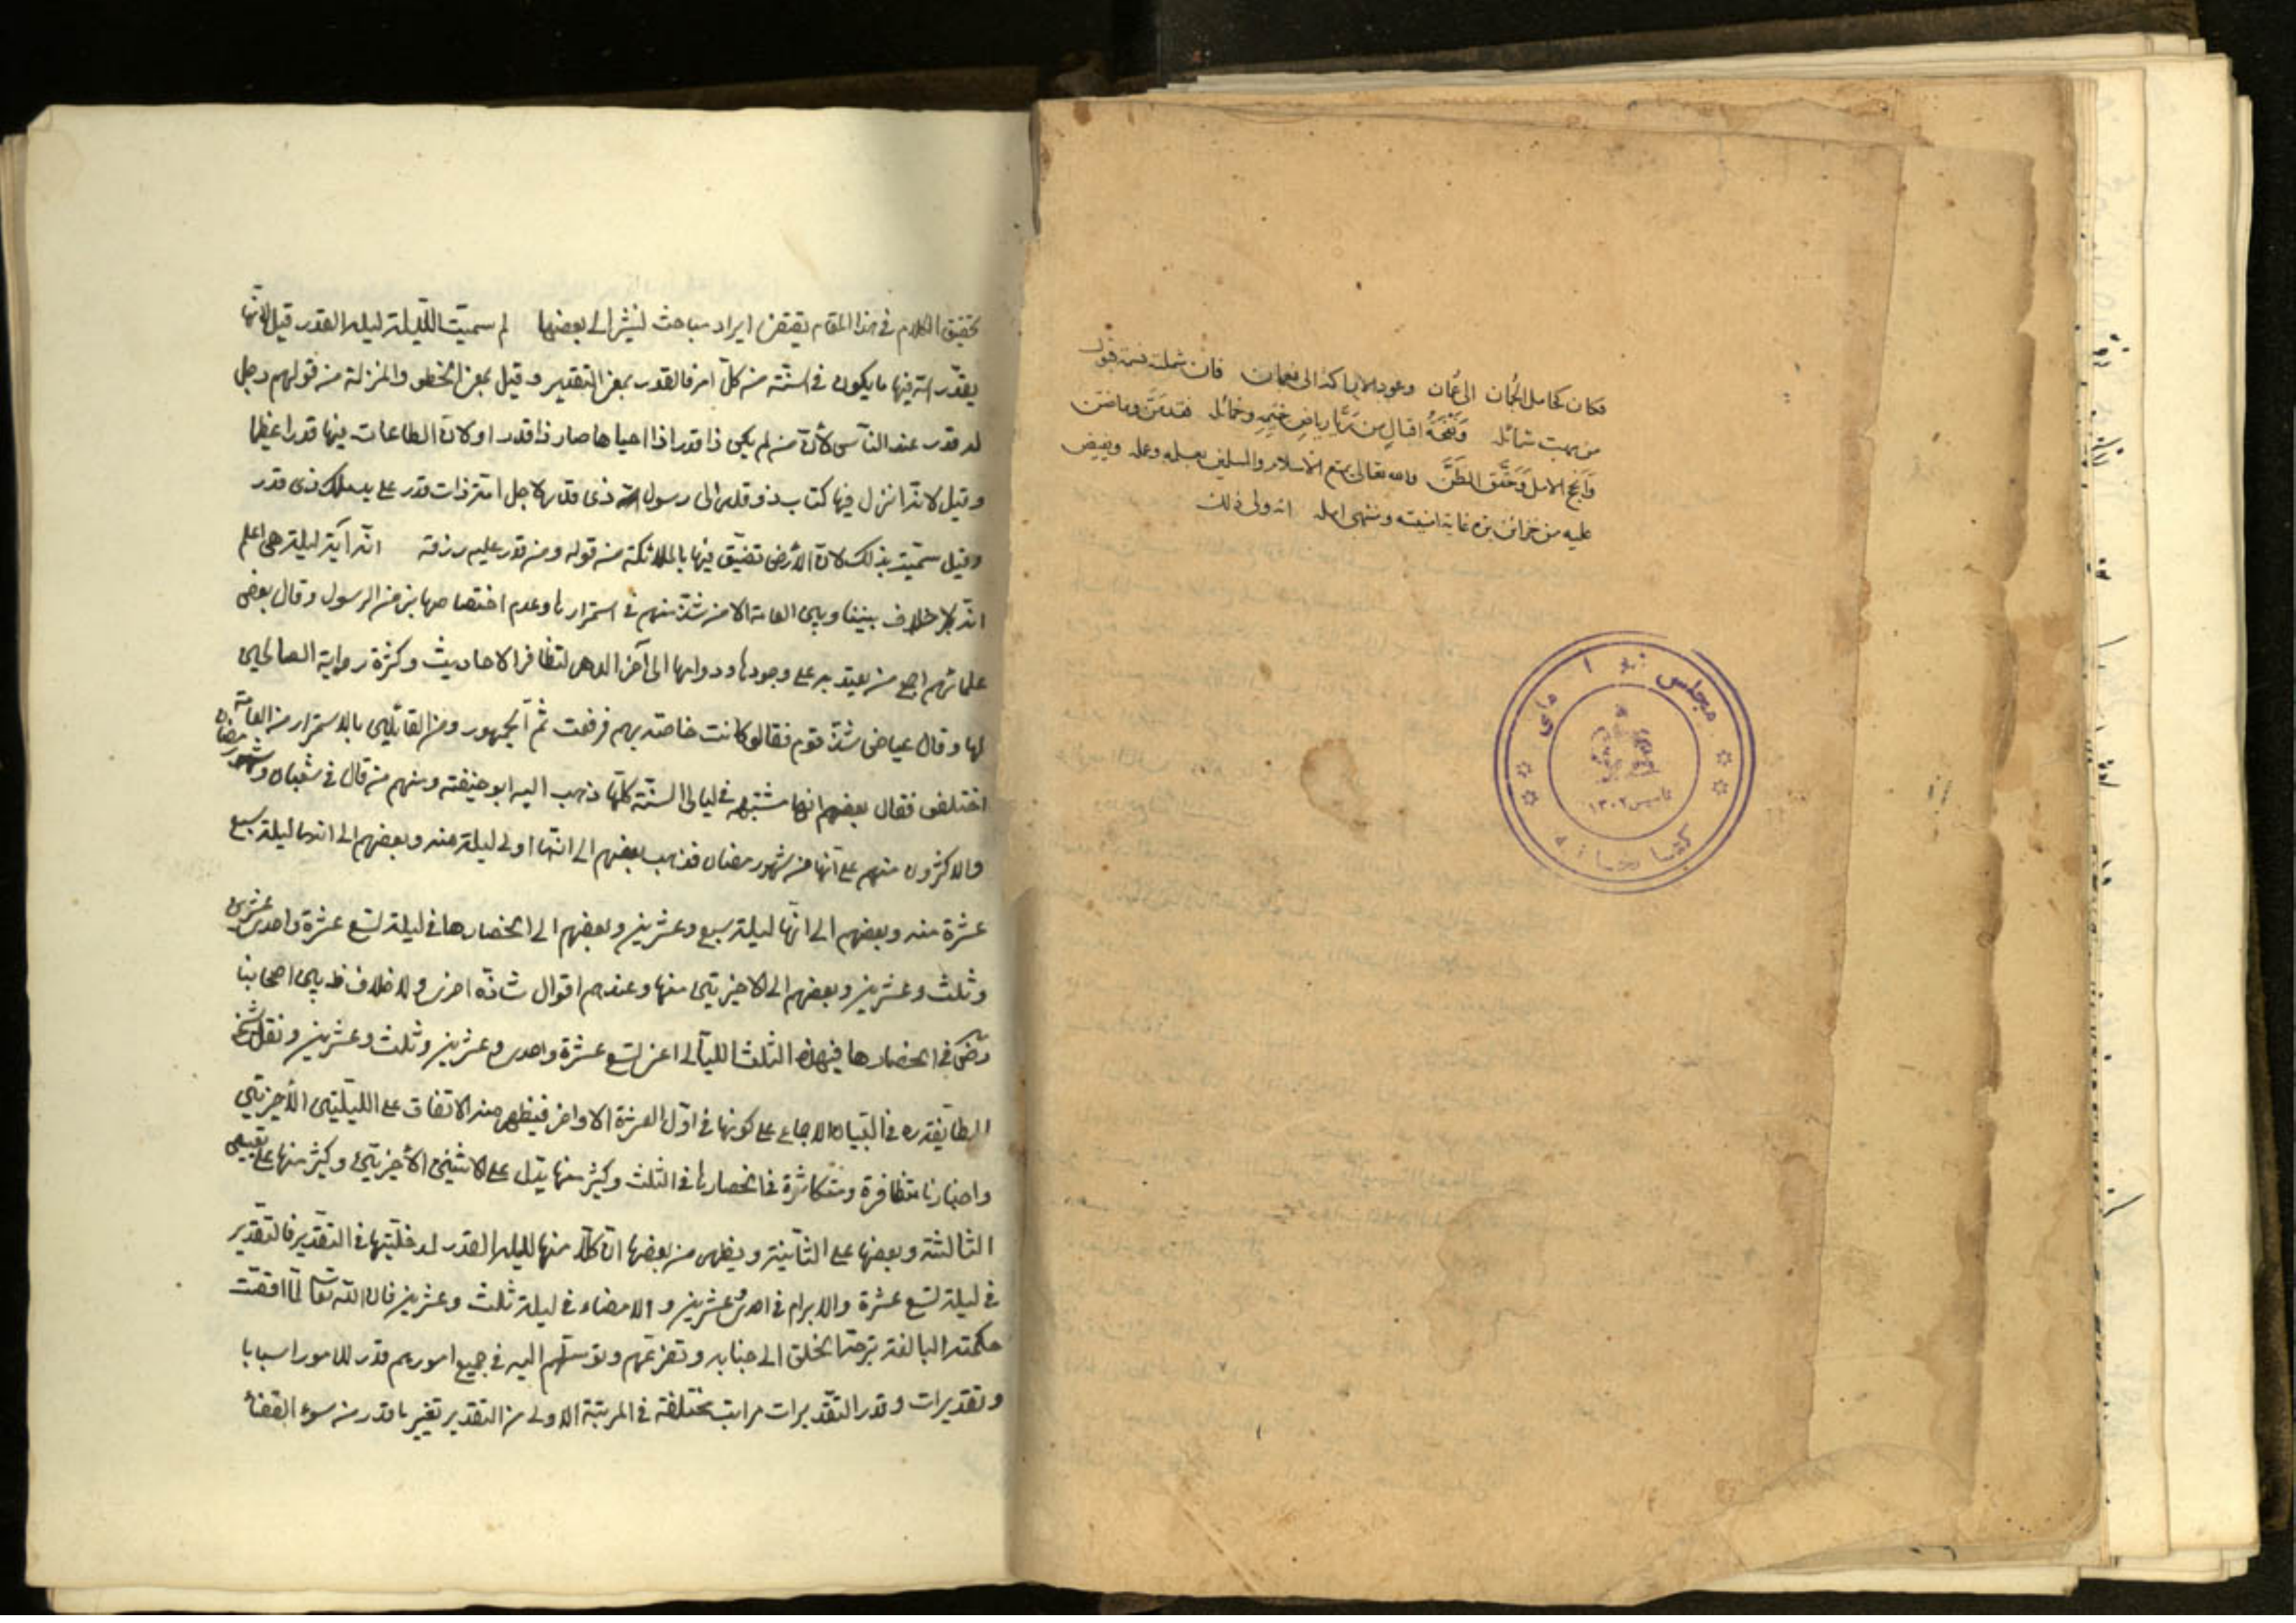 فكان كحامل الجُمان الى عُمان وعود الاراك الى نعمان فان شملته نسمة قبول
من مهب شمائله وَنَفْحَةُ اقبالٍ من رَيَّا رياضِ خِيَمِهِ وخمائله فقد مَنَّ وما ضَنَّ
وَاَنجح الامل وَحَقَّق الظنَّ والله تعالى يمتع الاسلام والمسلمين بعلمه وعمله ويفيض
عليه من خزائن بره غاية امنيته ومنتهى امله انه ولي ذلك
مجلس شورای ملی
تاسیس ۱۳۰۲
کتابخانه
تحقيق الكلام في هذا المقام يقتضي ايراد مباحث لنشر الى بعضها لم سميت الليلة ليلة القدر قيل لانها
يقدر الله فيها ما يكون في السنة من كل امر فالقدر بمعنى التقدير وقيل بمعنى الخطر والمنزلة من قولهم رجل
له قدر عند الناس لأن من لم يكن ذا قدر اذا احياها صار ذا قدر او لان الطاعات فيها قدرا عظيما
وقيل لانه انزل فيها كتاب ذو قدر الى رسول ذي قدر لاجل امة ذات قدر على يد ملك ذي قدر
وقيل سميت بذلك لان الأرض تضيق فيها بالملائكة من قوله ومن قدر عليه رزقه انه أية ليلة هي اعلم
انه لا خلاف بيننا وبين العامة الا من شذ منهم في استمرارها وعدم اختصاصها بزمن الرسول وقال بعض
علمائهم اجمع من يعتد به على وجودها ودوامها الى آخر الدهر لتظافر الاحاديث وكثرة رواية الصالحين
لها وقال عياض شذ قوم فقالوا كانت خاصة بهم فرفعت ثم الجمهور ومن القائلين بالاستمرار من العامة
اختلفوا فقال بعضهم انها مشتبهة في ليالي السنة كلها ذهب اليه ابو حنيفة ومنهم من قال في شعبان وشهر رمضان
والاكثرون منهم على انها من شهر رمضان فذهب بعضهم الى انها اولى ليلة منه وبعضهم الى انها ليلة سبع
عشرة منه وبعضهم الى انها ليلة سبع وعشرين وبعضهم الى انحصارها في ليلة تسع عشرة واحدى وعشرين
وثلث وعشرين وبعضهم الى الاخيرتين منها وعندهم اقوال شاذة اخرى ولا خلاف ظ بين اصحابنا
رض في انحصارها في هذه الثلث الليالي اعنى تسع عشرة واحدى وعشرين وثلث وعشرين ونقل شيخ
الطايفة ره في التبيان الاجماع على كونها في اول العشرة الاواخر فيظهر منه الاتفاق على الليلتين الأخيرتين
واخبارنا متظافرة ومتكاثرة في انحصارها في الثلث وكثير منها يدل على الاثنين الأخيرتين وكثير منها على تعيين
الثالثة وبعضها على الثانية ويظهر من بعضها ان كلا منها لليلة القدر لمدخليتها في التقدير فالتقدير
في ليلة تسع عشرة والابرام في احدى وعشرين والامضاء في ليلة ثلث وعشرين فان الله تعالى لما اقتضت
حكمته البالغة توجه الخلق الى جنابه وتضرعهم وتوسلهم اليه في جميع امورهم قدر للامور اسبابا
وتقديرات وقدر التقديرات مراتب مختلفة في المرتبة الاولى من التقدير تغيير ما قدر من سوء القضاء